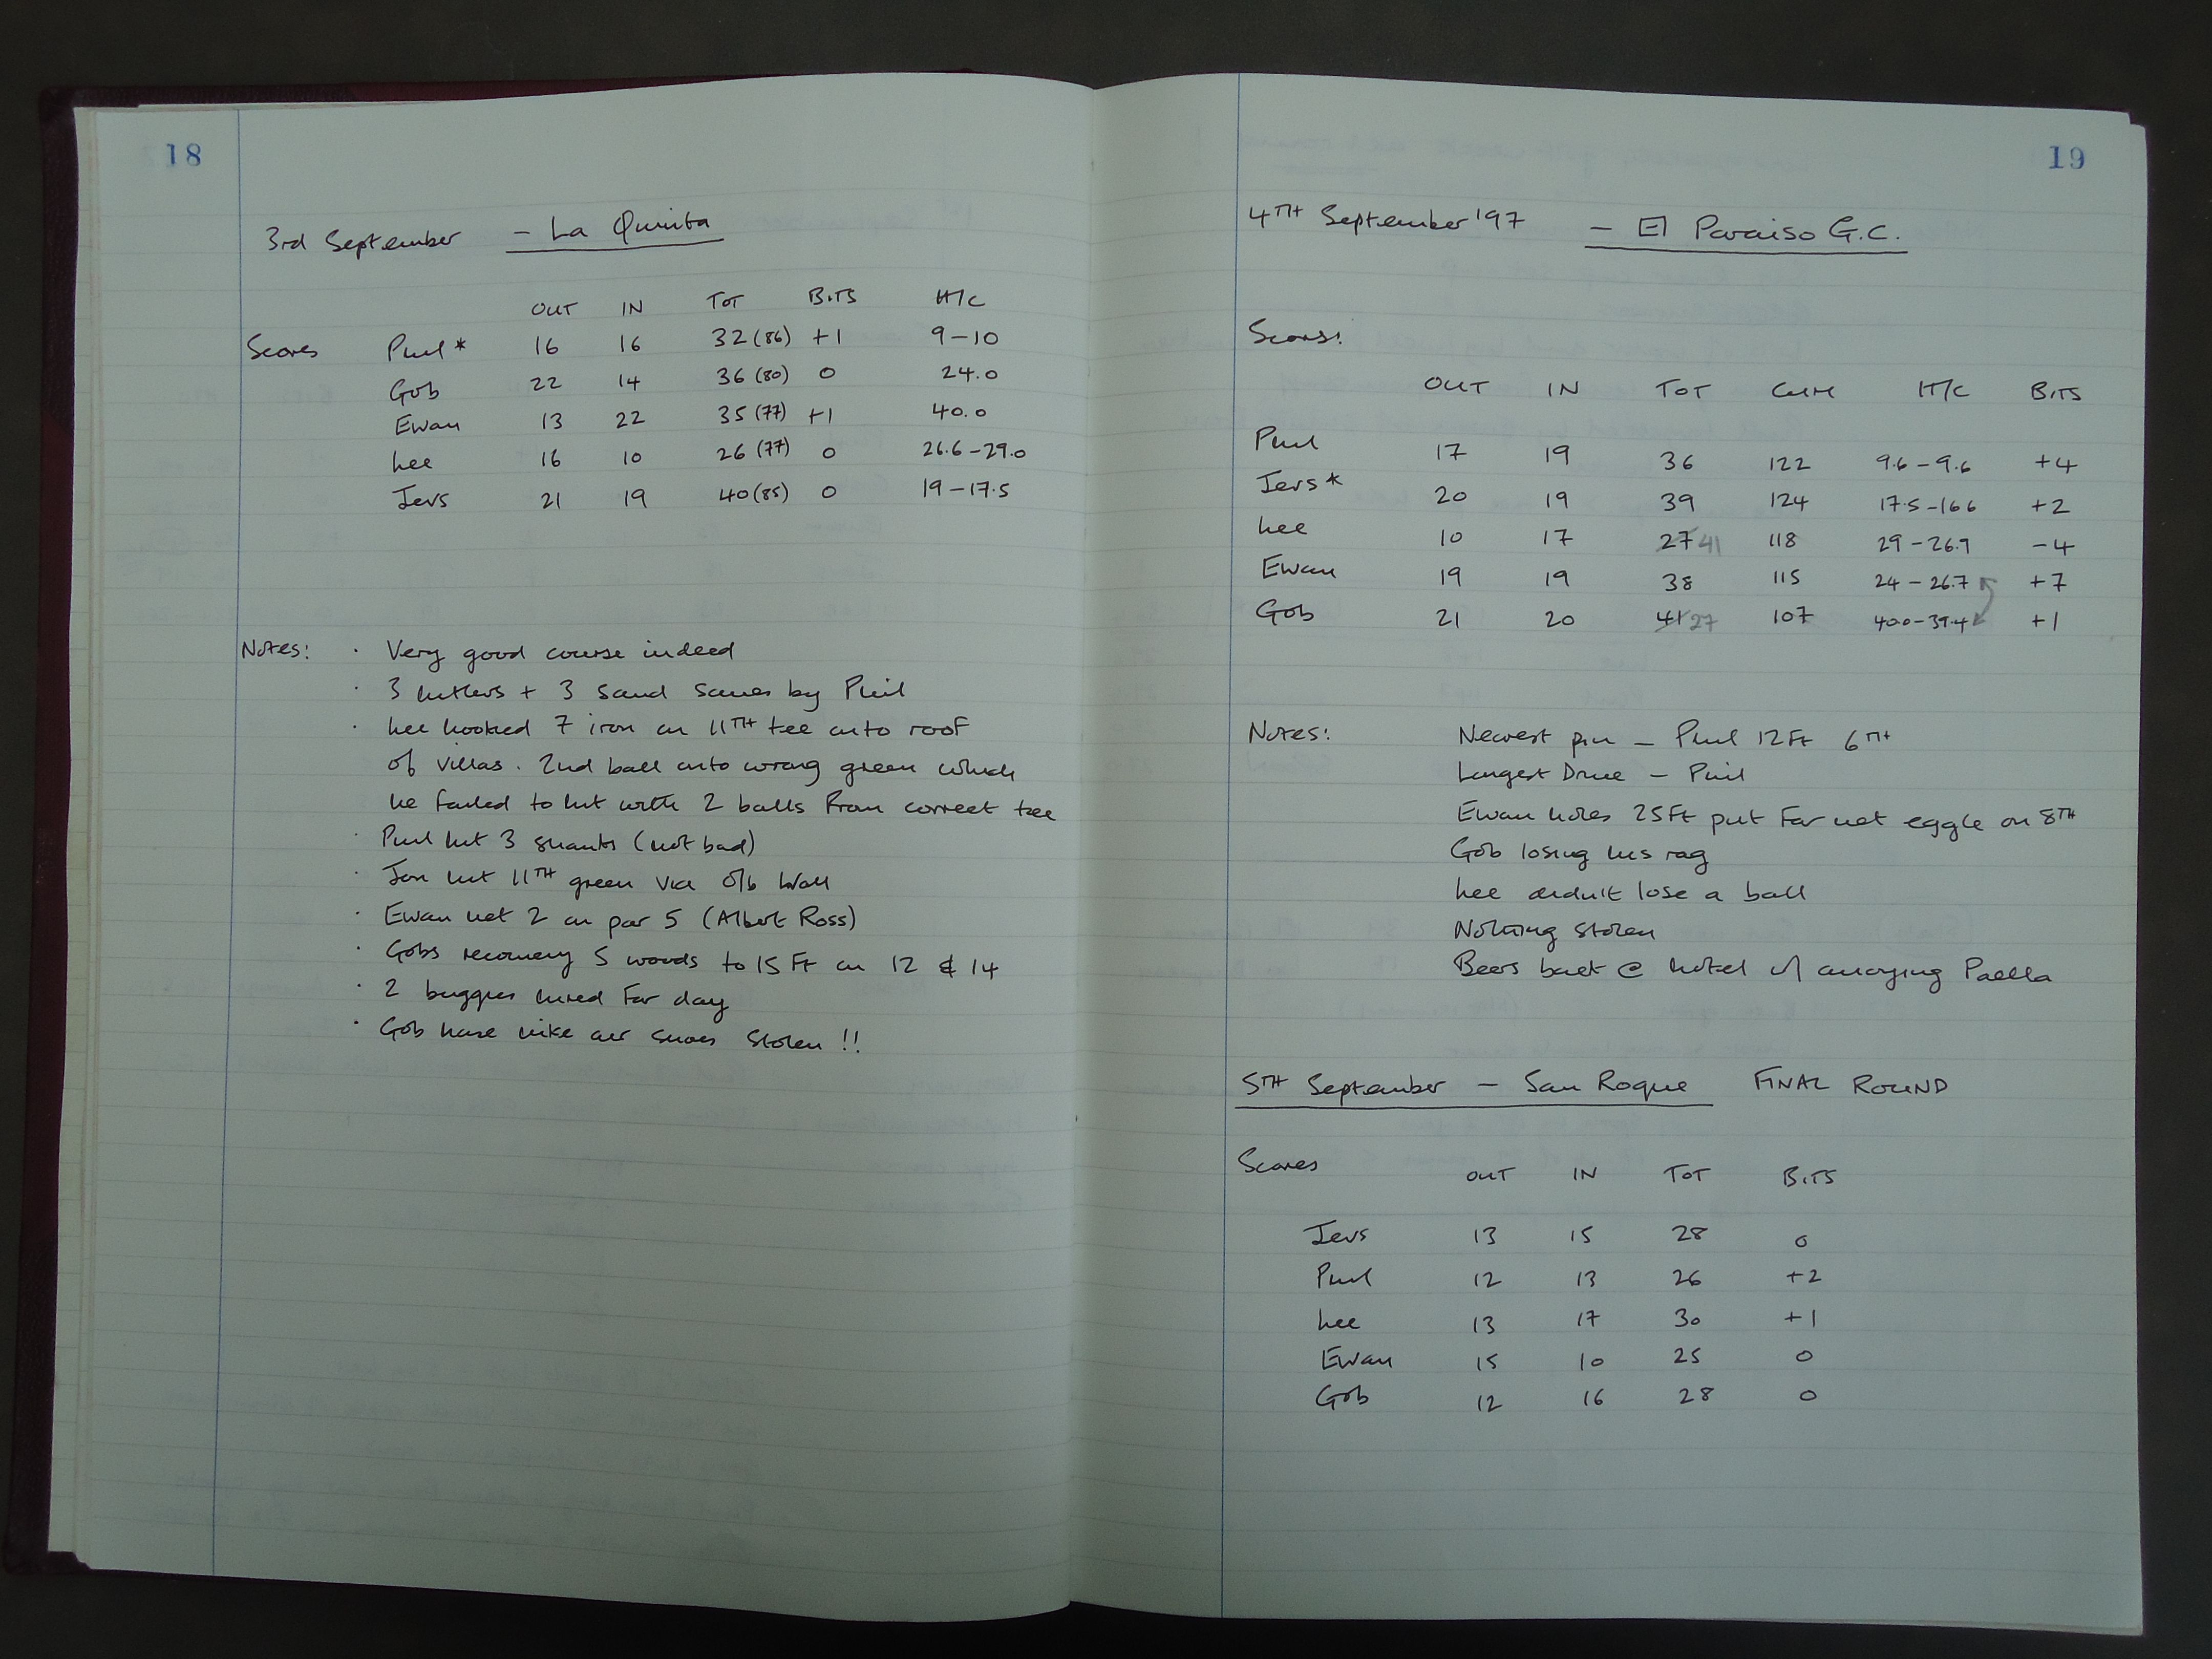 18
3rd September - La Quinta
OUT IN TOT BITS H/C
Scores Phil * 16 16 32 (86) +1 9-10
Gob 22 14 36 (80) 0 24.0
Ewan 13 22 35 (77) +1 40.0
Lee 16 10 26 (77) 0 26.6-29.0
Jevs 21 19 40 (85) 0 19-17.5
Notes: · Very good course indeed
· 3 + 3 sand saves by Phil
· Lee hooked 7 iron on 11TH tee onto roof
of villas. 2nd ball onto wrong green which
he failed to hit with 2 balls from correct tee
· Phil hit 3 shanks (not bad)
· Jon hit 11TH green via o/b wall
· Ewan net 2 on par 5 (Albert Ross)
· Gobs recovery 5 woods to 15 Ft on 12 & 14
· 2 buggies hired for day
· Gob have nike air shoes stolen !!
19
4TH September '97 - El Paraiso G.C.
Scores:
OUT IN TOT CUM H/C BITS
Phil 17 19 36 122 9.6-9.6 +4
Jevs * 20 19 39 124 17.5-16.6 +2
Lee 10 17 27 41 118 29-26.9 -4
Ewan 19 19 38 115 24-26.7 +7
Gob 21 20 41 27 107 40.0-39.4 +1
Notes: Nearest pin - Phil 12Ft 6TH
Longest Drive - Phil
Ewan holes 25Ft put for net eggle on 8TH
Gob losing his rag
Lee didn't lose a ball
Nothing stolen
Beers back @ hotel w/ annoying Paella
5TH September - San Roque FINAL ROUND
Scores OUT IN TOT BITS
Jevs 13 15 28 0
Phil 12 13 26 +2
Lee 13 17 30 +1
Ewan 15 10 25 0
Gob 12 16 28 0